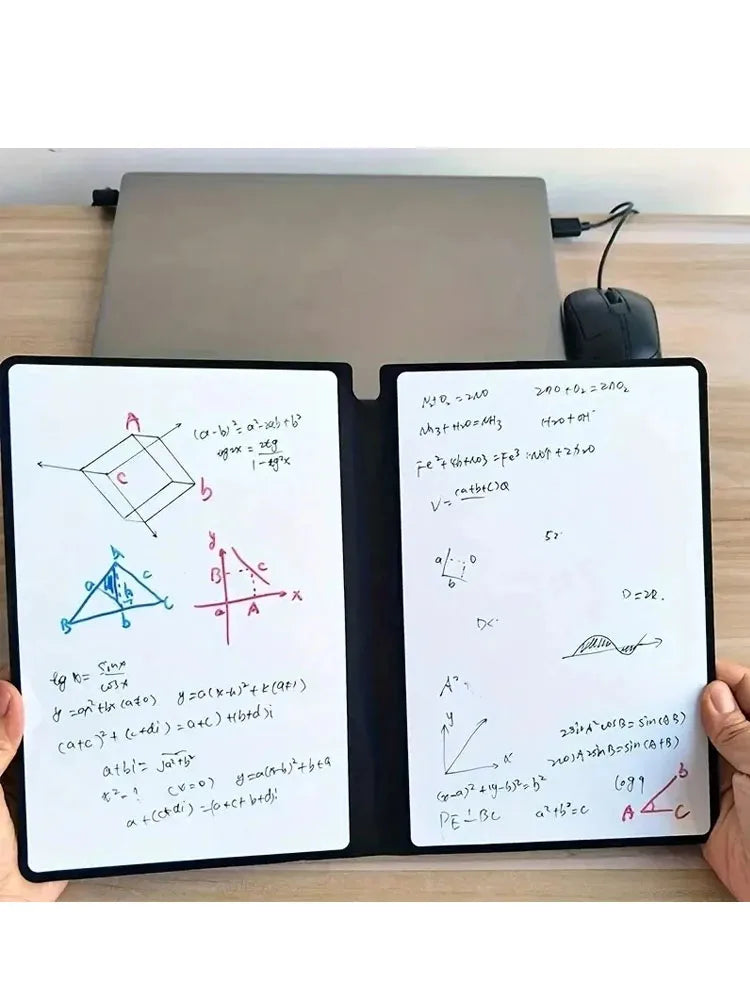 A
(a-b)² = a²-2ab+b²
tg2x = 2tg
1-tg²x
C
b
y
a c
B C
b
h
B c
a A x
tg x = sinx
cosx
y = ax²+bx (a≠0) y = a(x-h)²+k (a≠1)
(a+c)²+(c+di) = a+c)+(b+d)i
a+bi = √a²+b²
x²-1 (x=0) y=a(x-b)²+b+a
a+(c+di) = (a+c+b+d)i
N2+O2 = 2NO 2NO+O2 = 2NO2
NH3+H2O = NH3 H2O+OH⁻
Fe²+4H+NO3 = Fe³ NO↑+2H2O
V = (a+b+c)Q
52
a D
b
D=2R.
D<
A²
y
x
2sinA cosB = sin(AB)
2cosA sinB = sin(A+B)
(x-a)²+(y-b)²=b² log9 b
PE⊥BC a²+b²=c A C